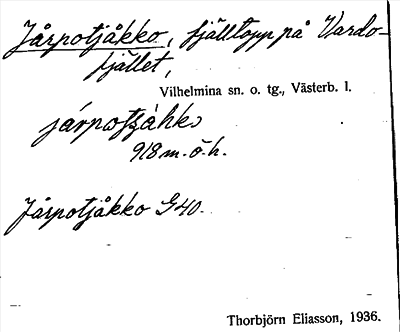 Jårpotjåkko, fjälltopp på Vardo-
fjället,
Vilhelmina sn. o. tg., Västerb. l.
járpotsåhkₒ
918 m. ö. h.
Jårpotjåkko G40.
Thorbjörn Eliasson, 1936.